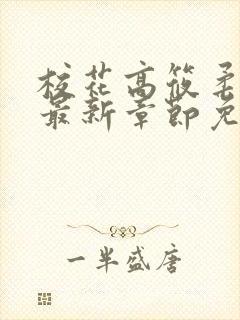 校花高筱柔
最新章節免
一半盛唐